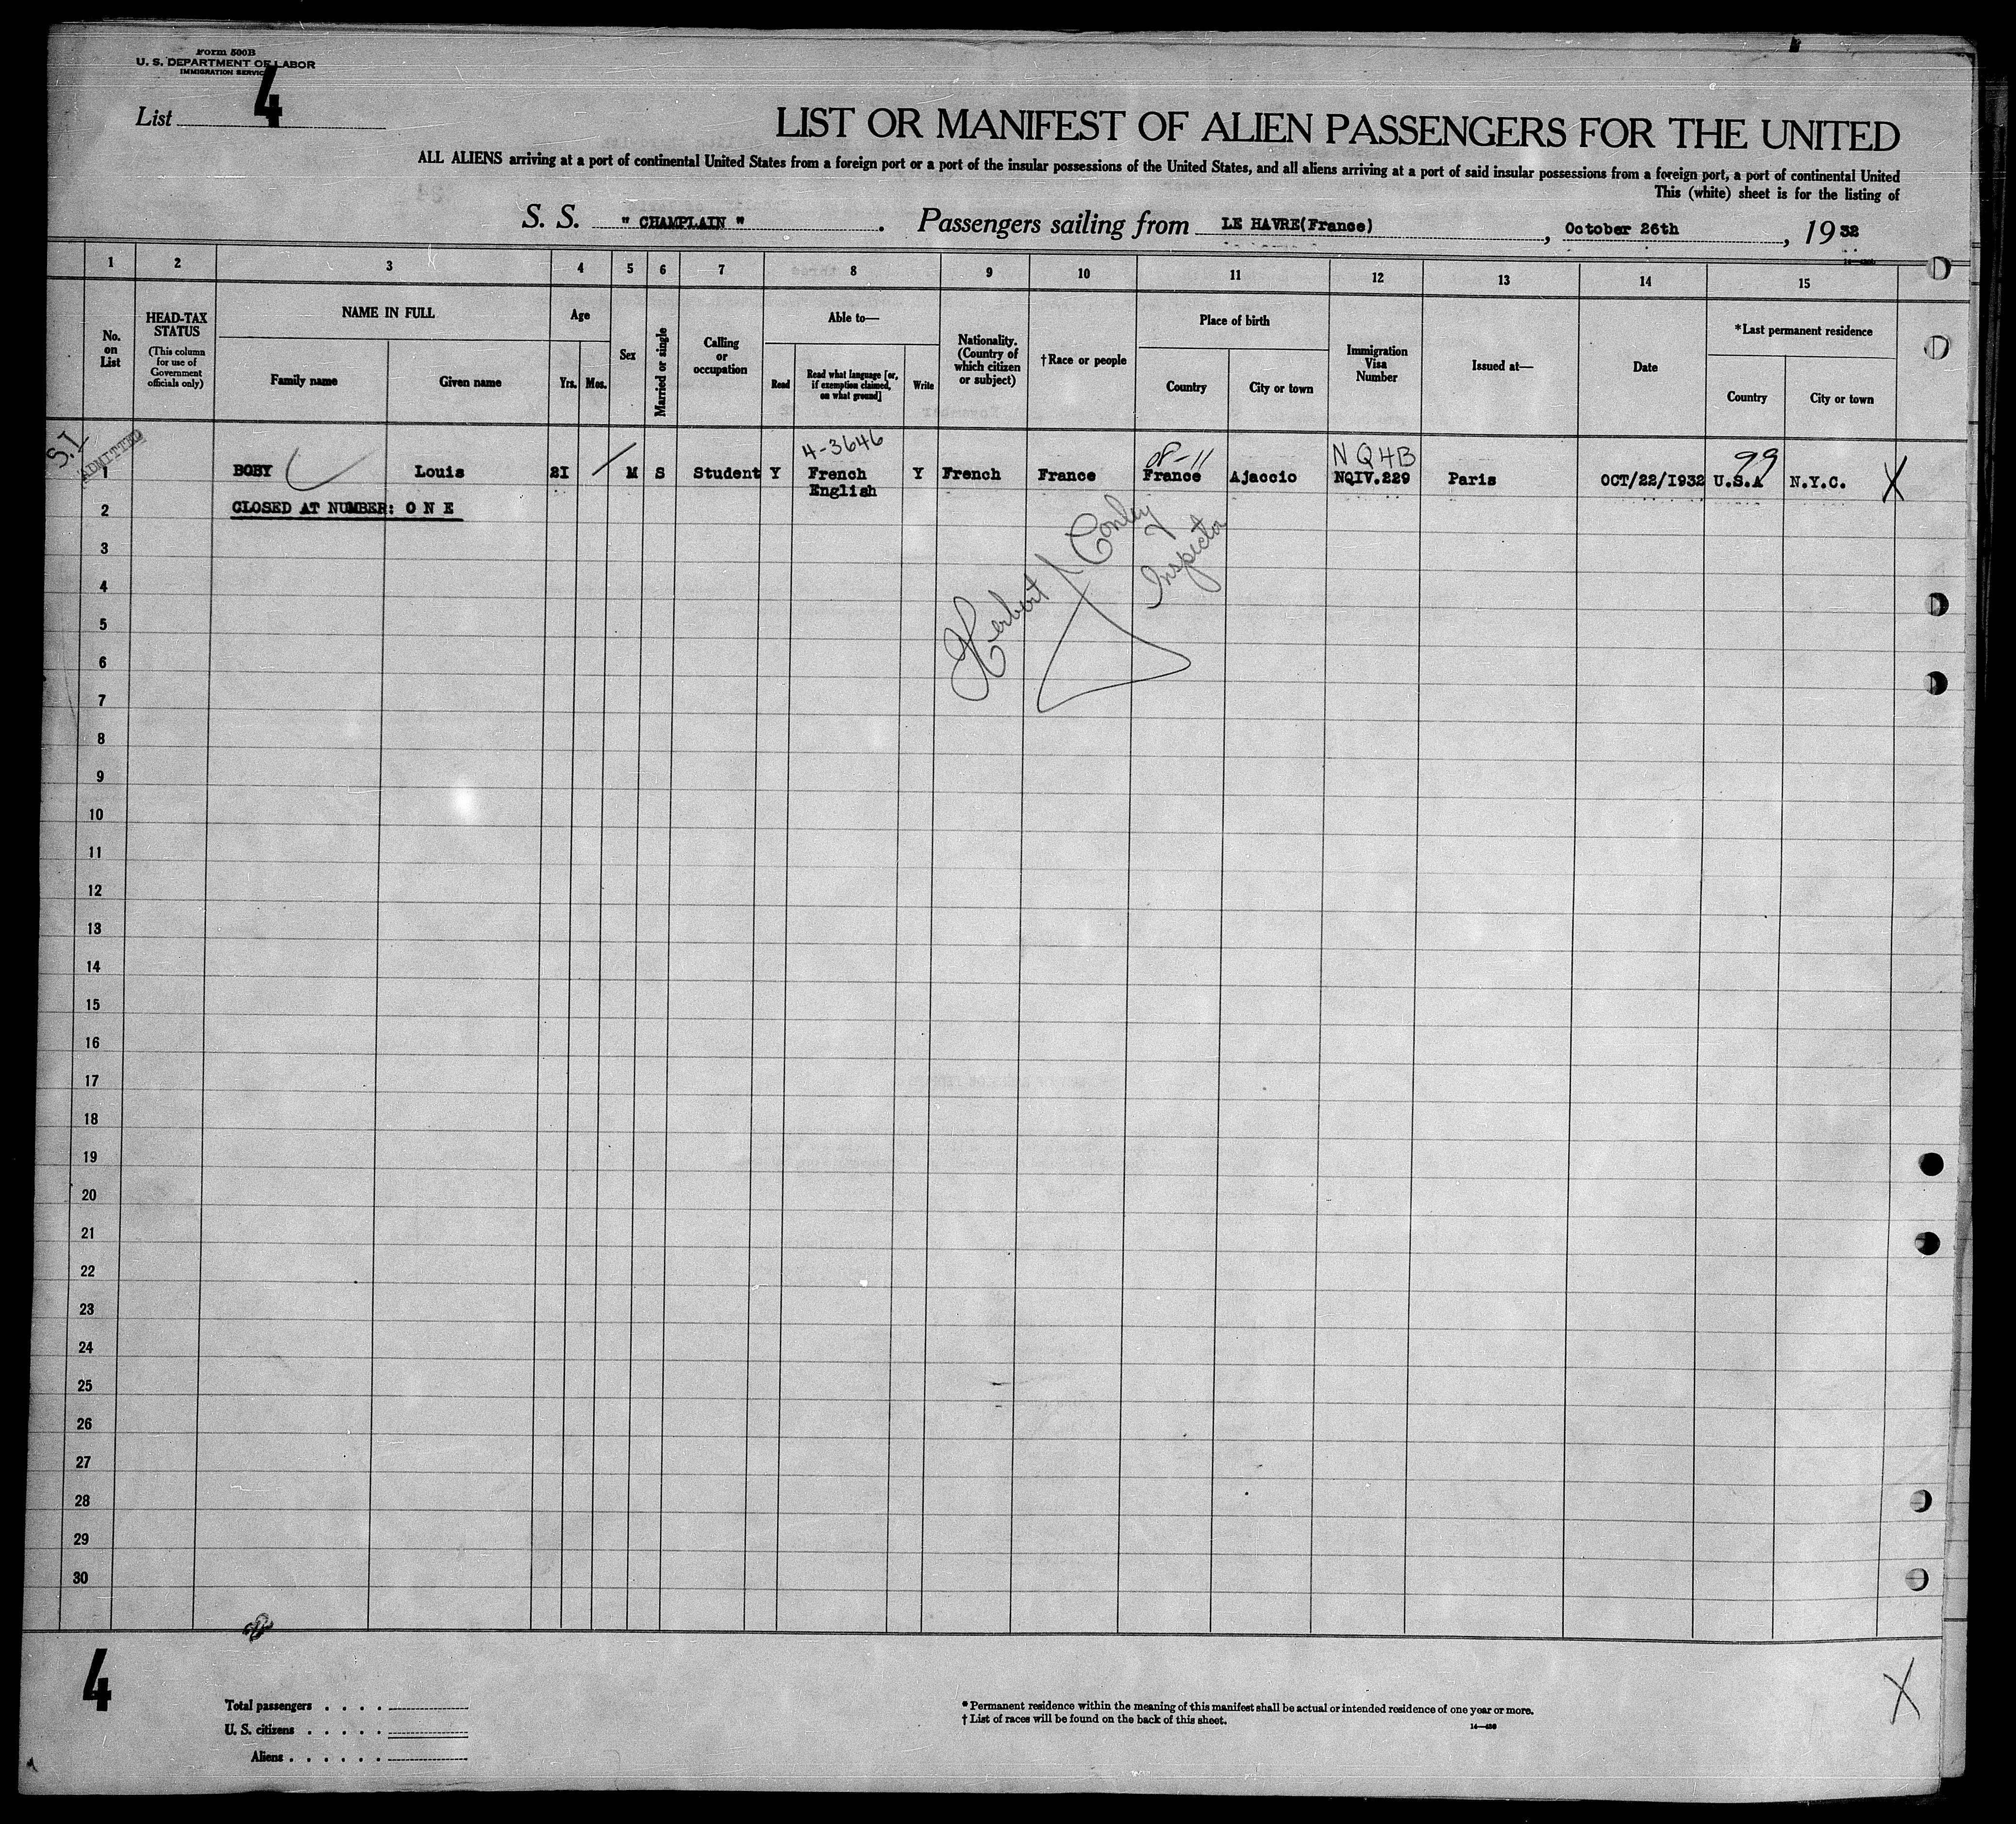 Form 500B
U. S. DEPARTMENT OF LABOR
IMMIGRATION SERVICE
List 4
LIST OR MANIFEST OF ALIEN PASSENGERS FOR THE UNITED
ALL ALIENS arriving at a port of continental United States from a foreign port or a port of the insular possessions of the United States, and all aliens arriving at a port of said insular possessions from a foreign port, a port of continental United
This (white) sheet is for the listing of
S. S. " CHAMPLAIN " . Passengers sailing from LE HAVRE(France) , October 26th , 19 32
1 2 3 4 5 6 7 8 9 10 11 12 13 14 15
No. on List
HEAD-TAX STATUS
(This column for use of Government officials only)
NAME IN FULL
Family name
Given name
Age
Yrs. Mos.
Sex
Married or single
Calling or occupation
Able to—
Read
Read what language [or, if exemption claimed, on what ground]
Write
Nationality. (Country of which citizen or subject)
†Race or people
Place of birth
Country
City or town
Immigration Visa Number
Issued at—
Date
*Last permanent residence
Country
City or town
S.I
ADMITTED
4-3646
08-11
NQ4B
99
1 BOBY Louis 2I M S Student Y French Y French France France Ajaccio NQIV.229 Paris OCT/22/I932 U.S.A N.Y.C. X
English
2 CLOSED AT NUMBER: O N E
Herbert J Conley
Inspector
3
4
5
6
7
8
9
10
11
12
13
14
15
16
17
18
19
20
21
22
23
24
25
26
27
28
29
30
4
X
Total passengers . . . .
U. S. citizens . . . . .
Aliens . . . . . .
* Permanent residence within the meaning of this manifest shall be actual or intended residence of one year or more.
† List of races will be found on the back of this sheet.